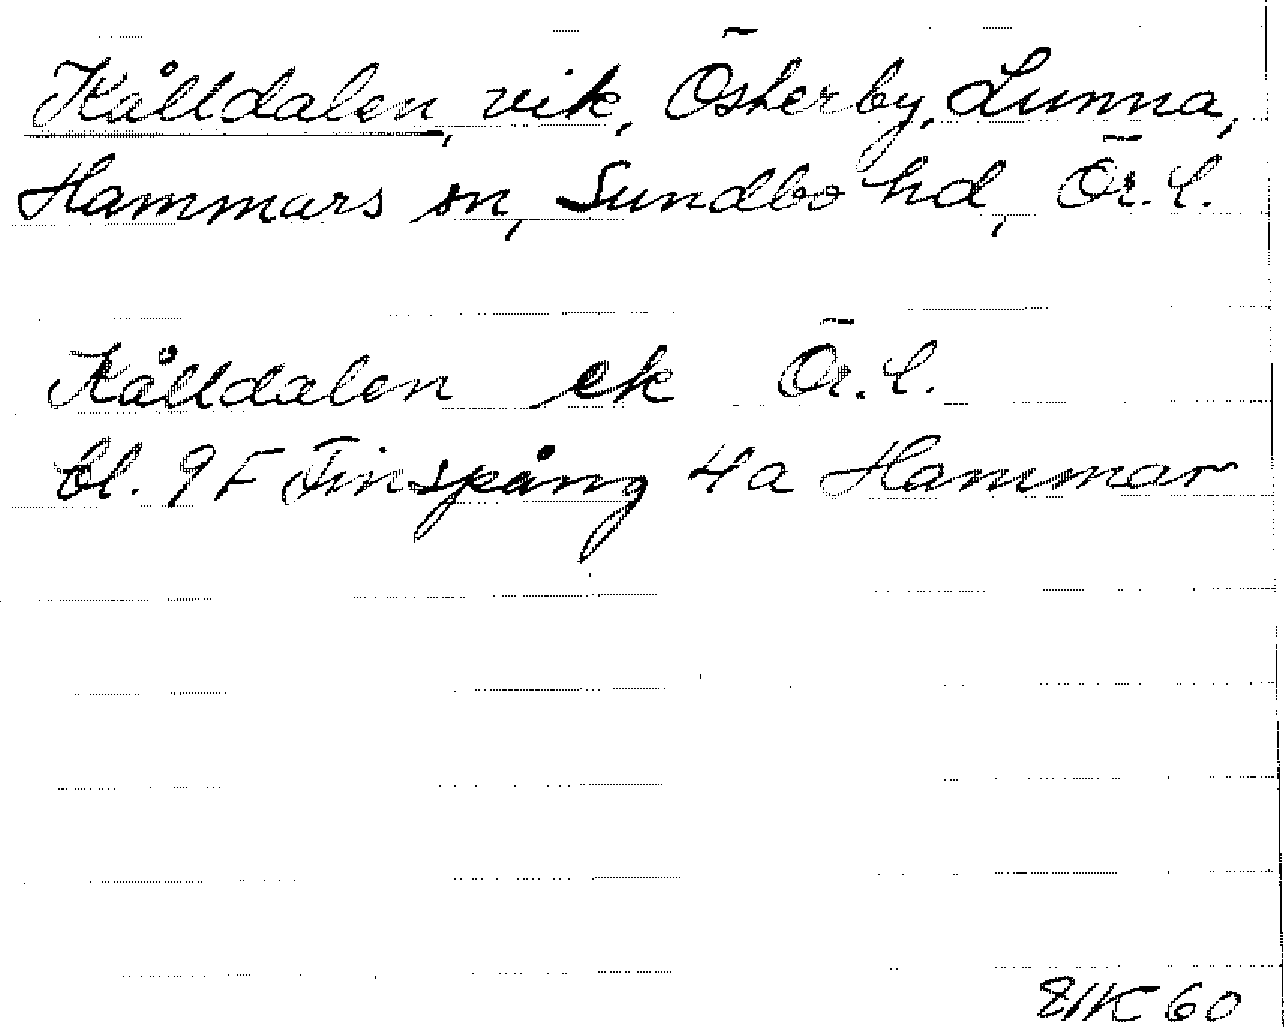 Kålldalen, vik, Österby, Lunna,
Hammars sn, Sundbo hd, Ör. l.
Kålldalen ek Ör. l.
bl. 9F Finspång 4a Hammar
EHK 60